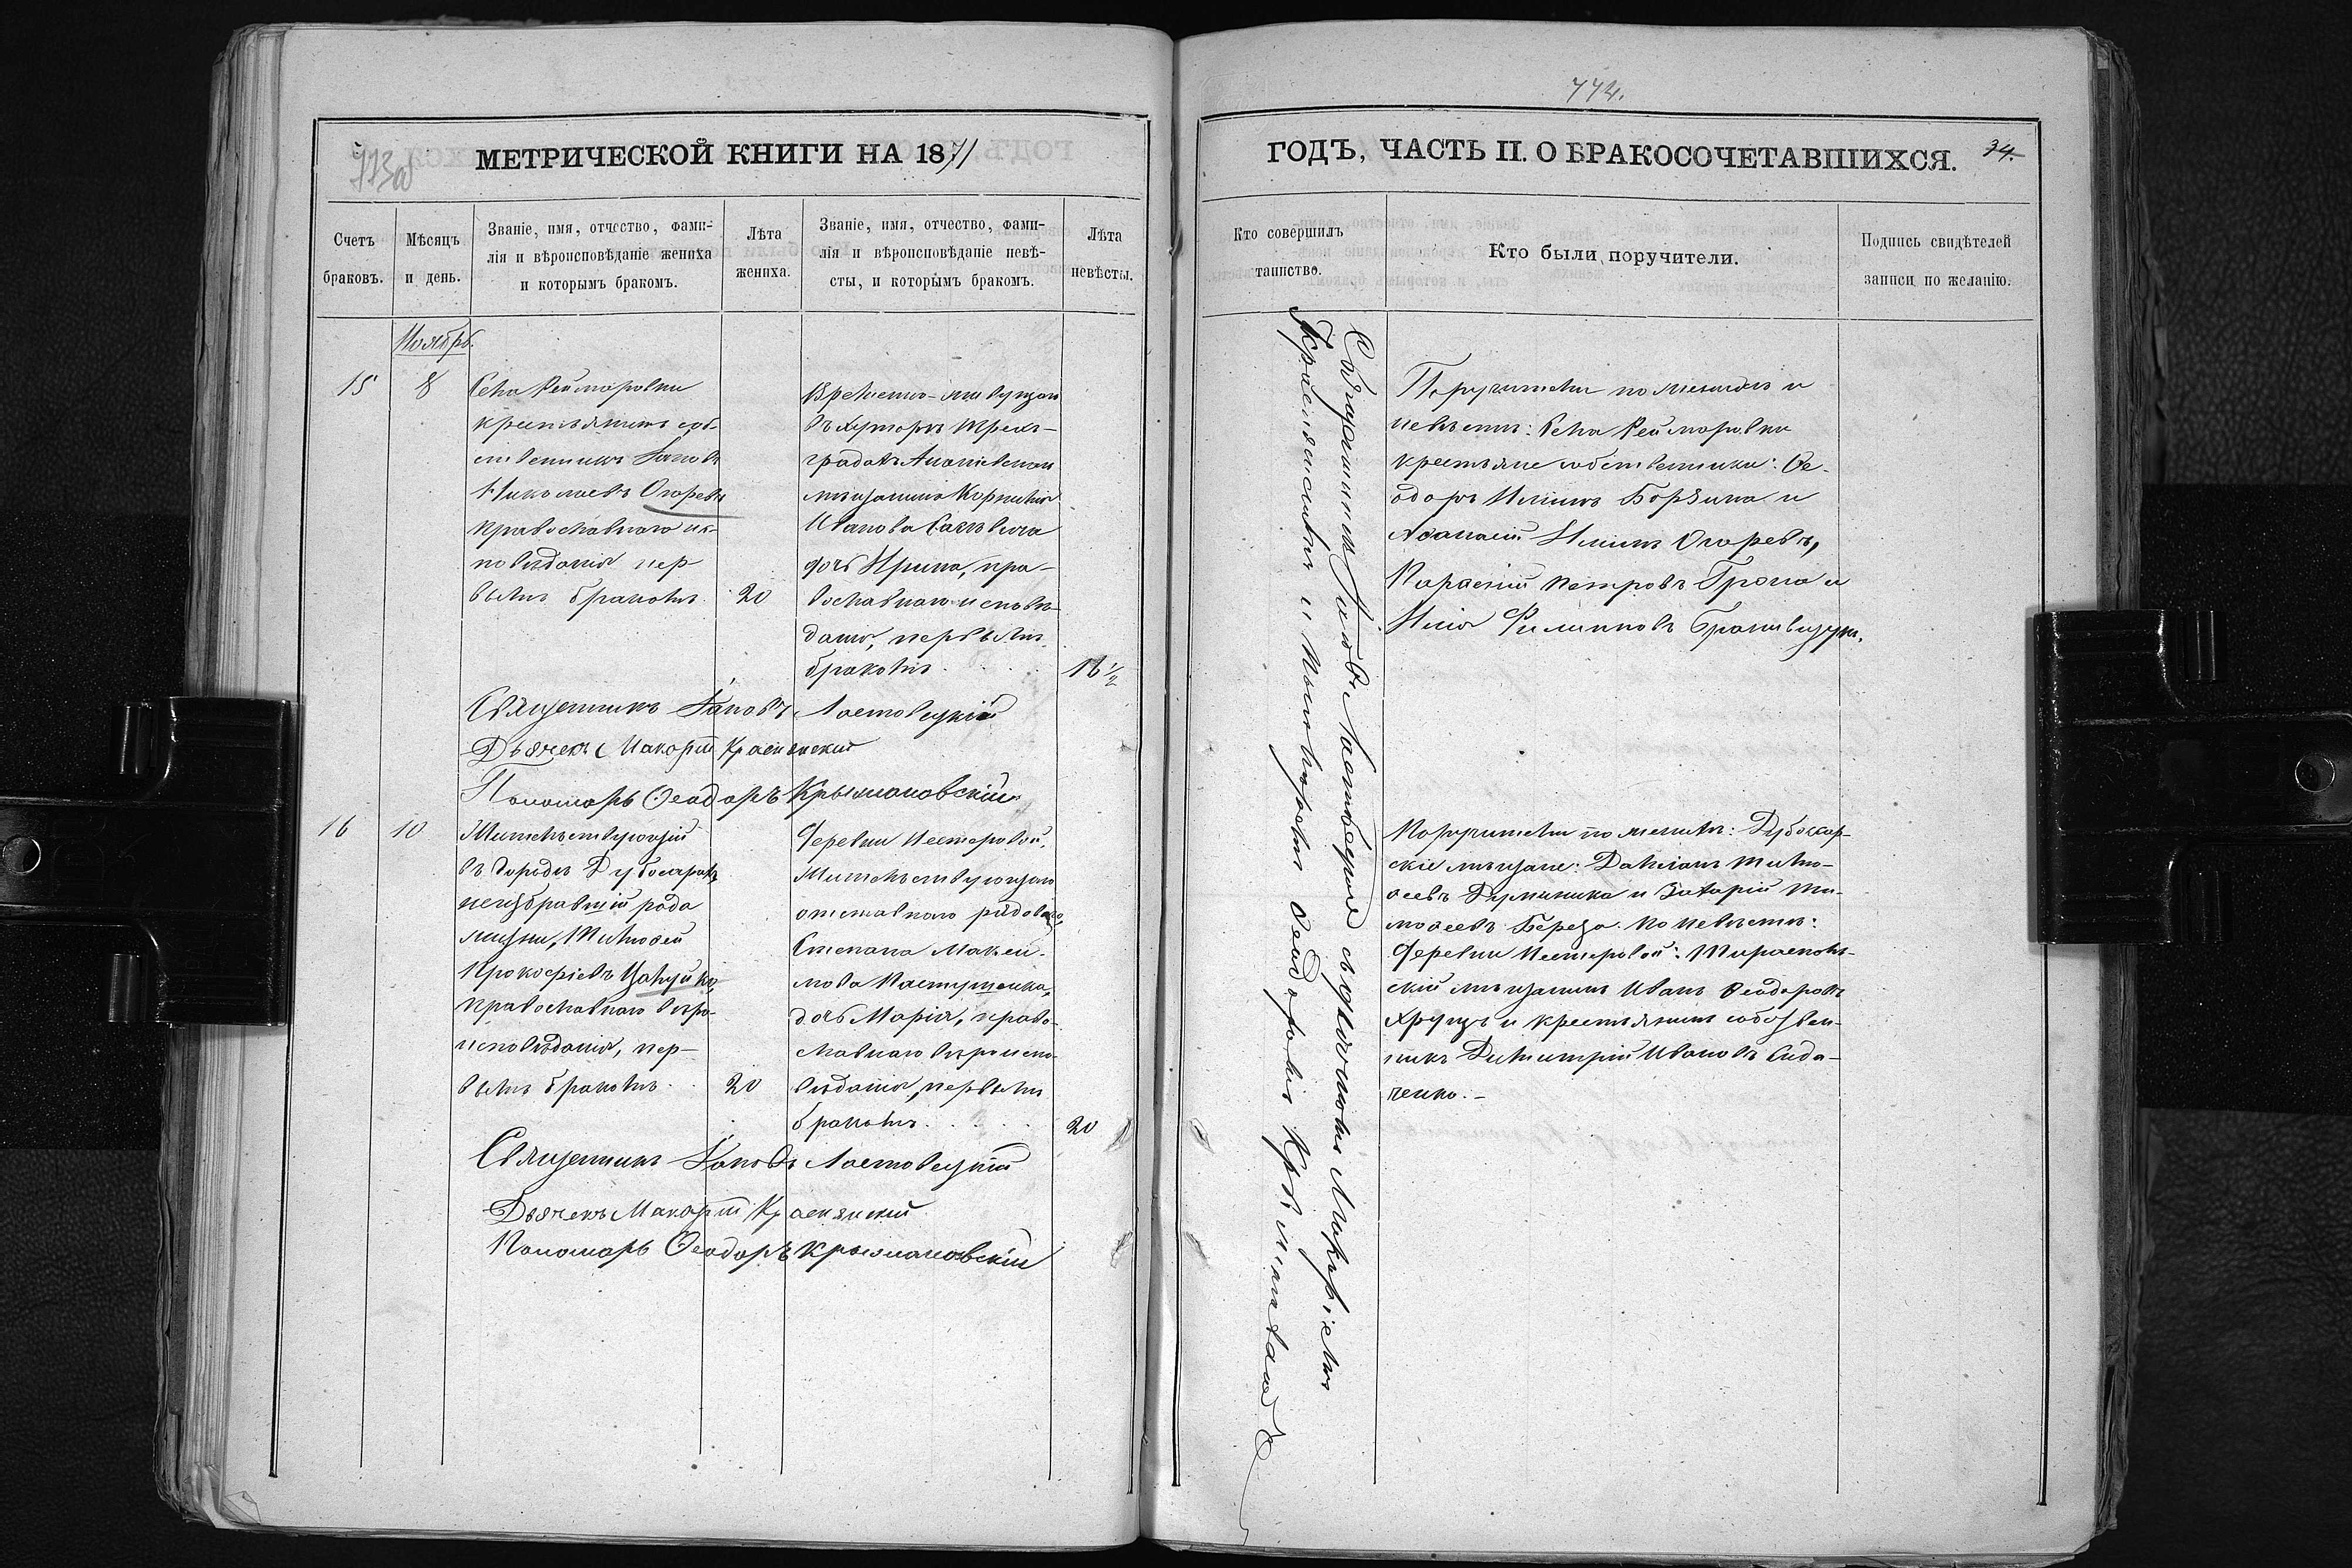 773об
МЕТРИЧЕСКОЙ КНИГИ НА 1871
Счетъ браковъ.
Мѣсяцъ и день.
Званіе, имя, отчество, фами-
лія и вѣроисповѣданіе жениха
и которымъ бракомъ.
Лѣта жениха.
Званіе, имя, отчество, фами-
лія и вѣроисповѣданіе невѣ-
сты, и которымъ бракомъ.
Лѣта невѣсты.
Ноябрь.
15
8
Села Реймаровки
крестьянинъ соб-
ственникъ Іаковъ
Николаевъ Огоревъ
православнаго ис-
повѣданія пер-
вымъ бракомъ.
20
Временно-живущаго
въ хуторѣ Трех-
градахъ Ананьевскаго
мѣщанина Корнилія
Иванова
дочь Ирина, пра-
вославнаго исповѣ-
данія, первымъ
бракомъ
16 1/2
Священникъ Іаковъ Лостовецкій
Дьячекъ Макарій Краснянскій
Пономарь Ѳеодоръ Крыжановскій
16
10
Жительствующій
въ городѣ Дубосарахъ
неизбравшій рода
жизни, Тимоѳей
Прокофіевъ Цануйко,
православнаго вѣро-
исповѣданія, пер-
вымъ бракомъ
20
Деревни Нестеровой,
Жительствующаго
отставнаго рядоваго,
Степана Макси-
мова Пастушенка,
дочь Марія, право-
славнаго вѣроиспо-
вѣданія, первымъ
бракомъ
20
Священникъ Іаковъ Лостовецкій
Дьячекъ Макарій Краснянскій
Пономарь Ѳеодоръ Крыжановскій
774.
ГОДЪ, ЧАСТЬ II. О БРАКОСОЧЕТАВШИХСЯ.
34.
Кто совершилъ таинство.
Кто были поручители.
Подпись свидѣтелей
записи по желанію.
Священникъ Іаковъ Лостовецкій съ дьячкомъ Макаріемъ
Краснянскимъ и пономаремъ Ѳеодоромъ Крыжановскимъ
Поручители по женихѣ и
невѣстѣ: Села Реймаровки
крестьяне собственники: Ѳе-
одоръ Ильинъ Борзина и
Аѳанасій Ильинъ Огоревъ,
Парасній Петровъ Гроза и
Илія Филиповъ
Поручители по женихѣ: Дубоссар-
скіе мѣщане: Даміанъ Тимо-
ѳеевъ и Захарій Ти-
моѳеевъ Береза. По невѣстѣ:
Деревни Нестеровой: Тираспольскій
мѣщанинъ Иванъ Ѳеодоровъ
Хрущъ и крестьянинъ собствен-
никъ Димитрій Ивановъ Сида-
ченко.-